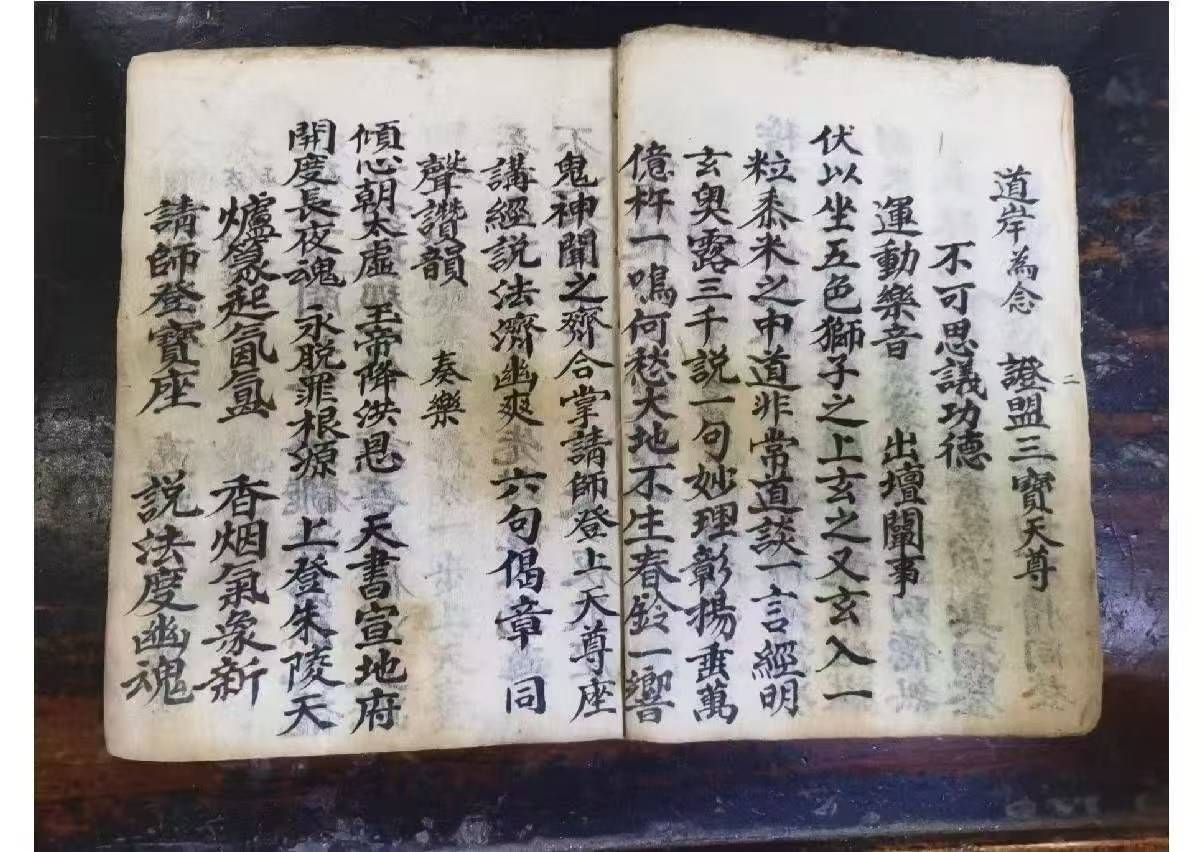 道岸為念 證盟三寶天尊
不可思議功德
運動樂音 出壇闡事
伏以坐五色獅子之上玄之又玄入一
粒黍米之中道非常道談一言經明
玄奧露三千説一句妙理彰揚垂萬
億杵一鳴何愁大地不生春鈴一響
鬼神聞之齊合掌請師登上天尊座
講經説法濟幽爽 六句偈章 同
聲讚韻 奏樂
傾心朝太虛 玉帝降洪恩 天書宣地府
開度長夜魂 永脱罪根源 上登朱陵天
爐篆起氤氳 香烟氣象新
請師登寶座 説法度幽魂
二